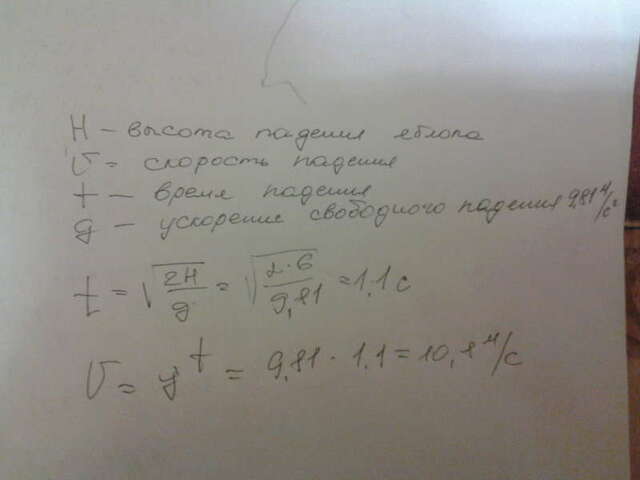 H – высота падения яблока
υ = скорость падения
t – время падения
g – ускорение свободного падения 9,81 м/с²
t = √(2H/g) = √(2·6/9,81) = 1,1 с
υ = gt = 9,81 · 1,1 = 10,8 м/с